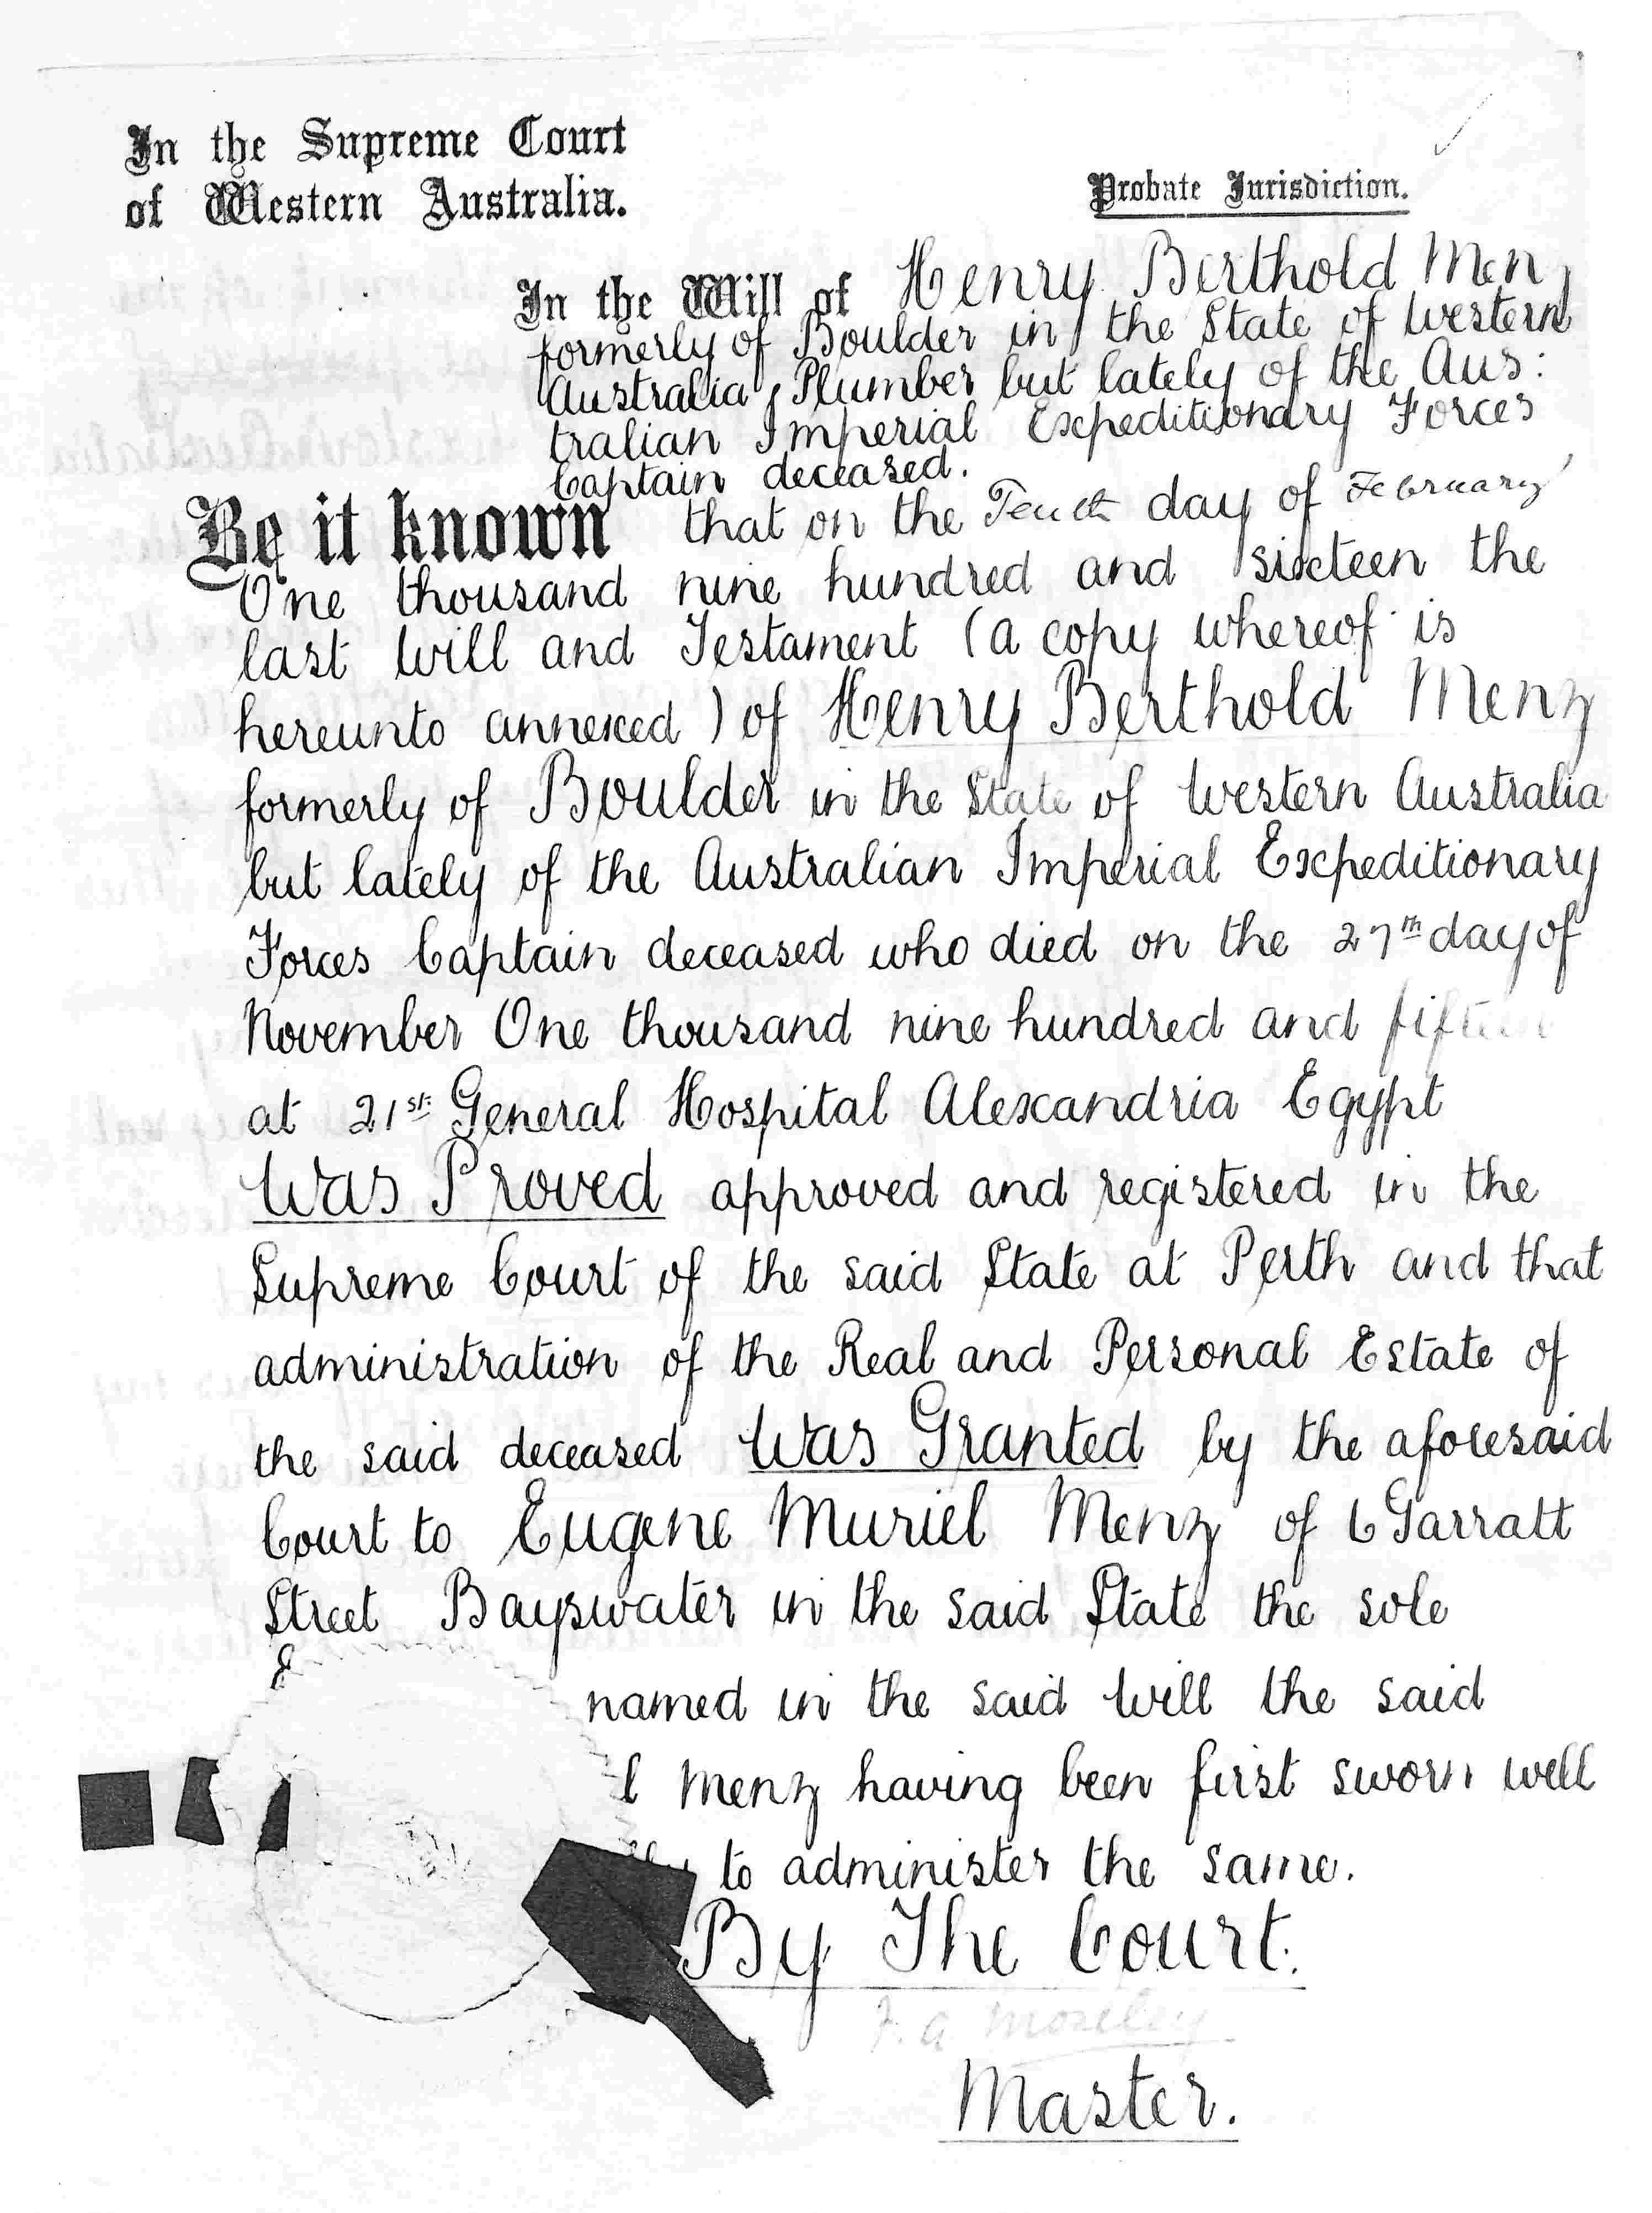 In the Supreme Court
of Western Australia.
Probate Jurisdiction.
In the Will of Henry Berthold Menz
formerly of Boulder in the State of Western
Australia Plumber but lately of the Aus:
tralian Imperial Expeditionary Forces
Captain deceased.
Be it known that on the Tenth day of February
One thousand nine hundred and sixteen the
last Will and Testament (a copy whereof is
hereunto annexed) of Henry Berthold Menz
formerly of Boulder in the State of Western Australia
but lately of the Australian Imperial Expeditionary
Forces Captain deceased who died on the 27th day of
November One thousand nine hundred and fifteen
at 21st General Hospital Alexandria Egypt
Was Proved approved and registered in the
Supreme Court of the said State at Perth and that
administration of the Real and Personal Estate of
the said deceased Was Granted by the aforesaid
Court to Eugene Muriel Menz of 6 Garratt
Street Bayswater in the said State the sole
E
named in the said Will the said
l Menz having been first sworn well
lly to administer the same.
By The Court.
F. A. Moseley
Master.